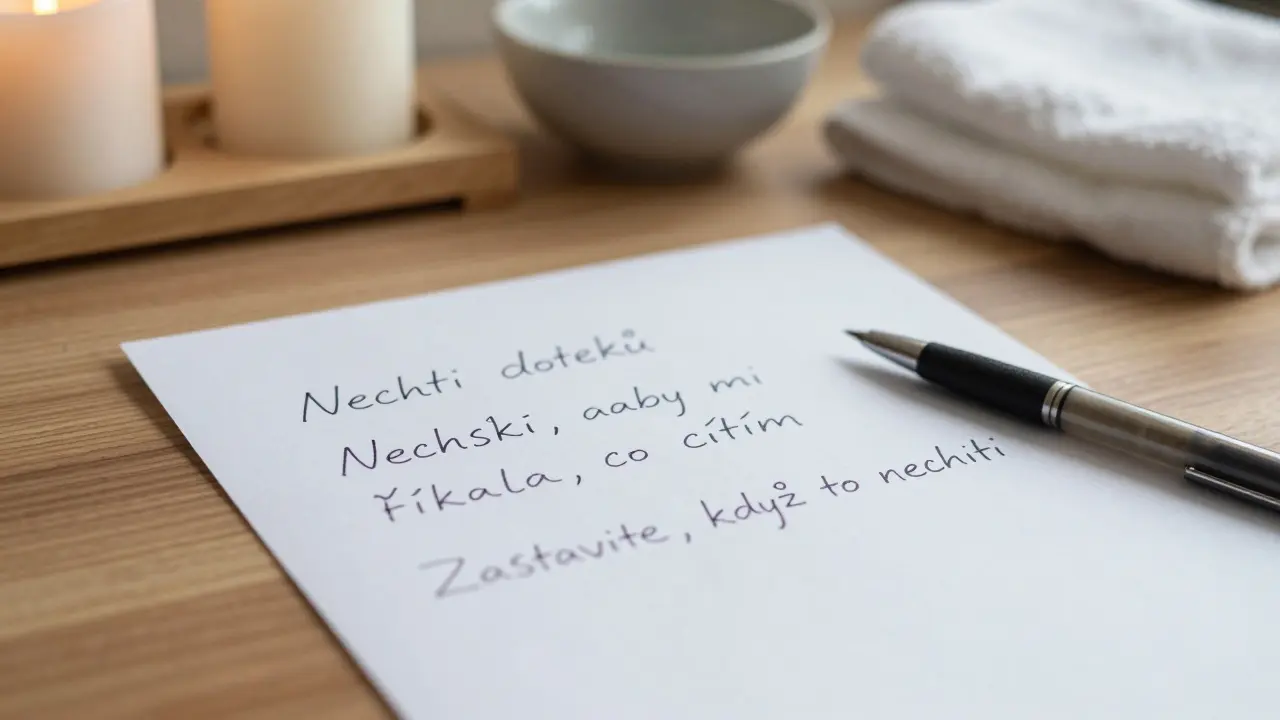 Nechti doteků
Nechski, aaby mi
říkala, co cítím
Zastavite, když to nechiti